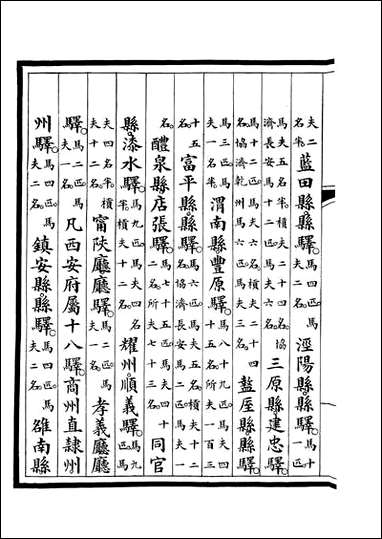 夫二名半。藍田縣縣驛。馬四匹馬夫二名。涇陽縣縣驛。馬十一匹
馬夫五名半積夫二十六名。協濟長安馬十二匹馬夫六名。三原縣建忠驛。
馬十二匹馬夫六名積夫二十四名。協濟乾州馬六匹馬夫三名。盩厔縣縣驛。
馬三匹馬夫一名半。渭南縣豐原驛。馬八十九匹馬夫四十五名所夫一百三
十五名。富平縣縣驛。馬四匹馬夫二名積夫十二名。協濟長安馬二匹馬夫一
名。醴泉縣店張驛。夫四十二名所夫七十三名。同官
縣漆水驛。馬九匹馬夫四名半積夫十二名。耀州順義驛。馬九匹馬
夫四名半積夫十二名。甯陝廳廳驛。馬二匹馬夫一名。孝義廳廳
驛。馬二匹馬夫一名。凡西安府屬十八驛。商州直隸州
州驛。馬四匹馬夫二名。鎮安縣縣驛。馬四匹馬夫二名。雒南縣